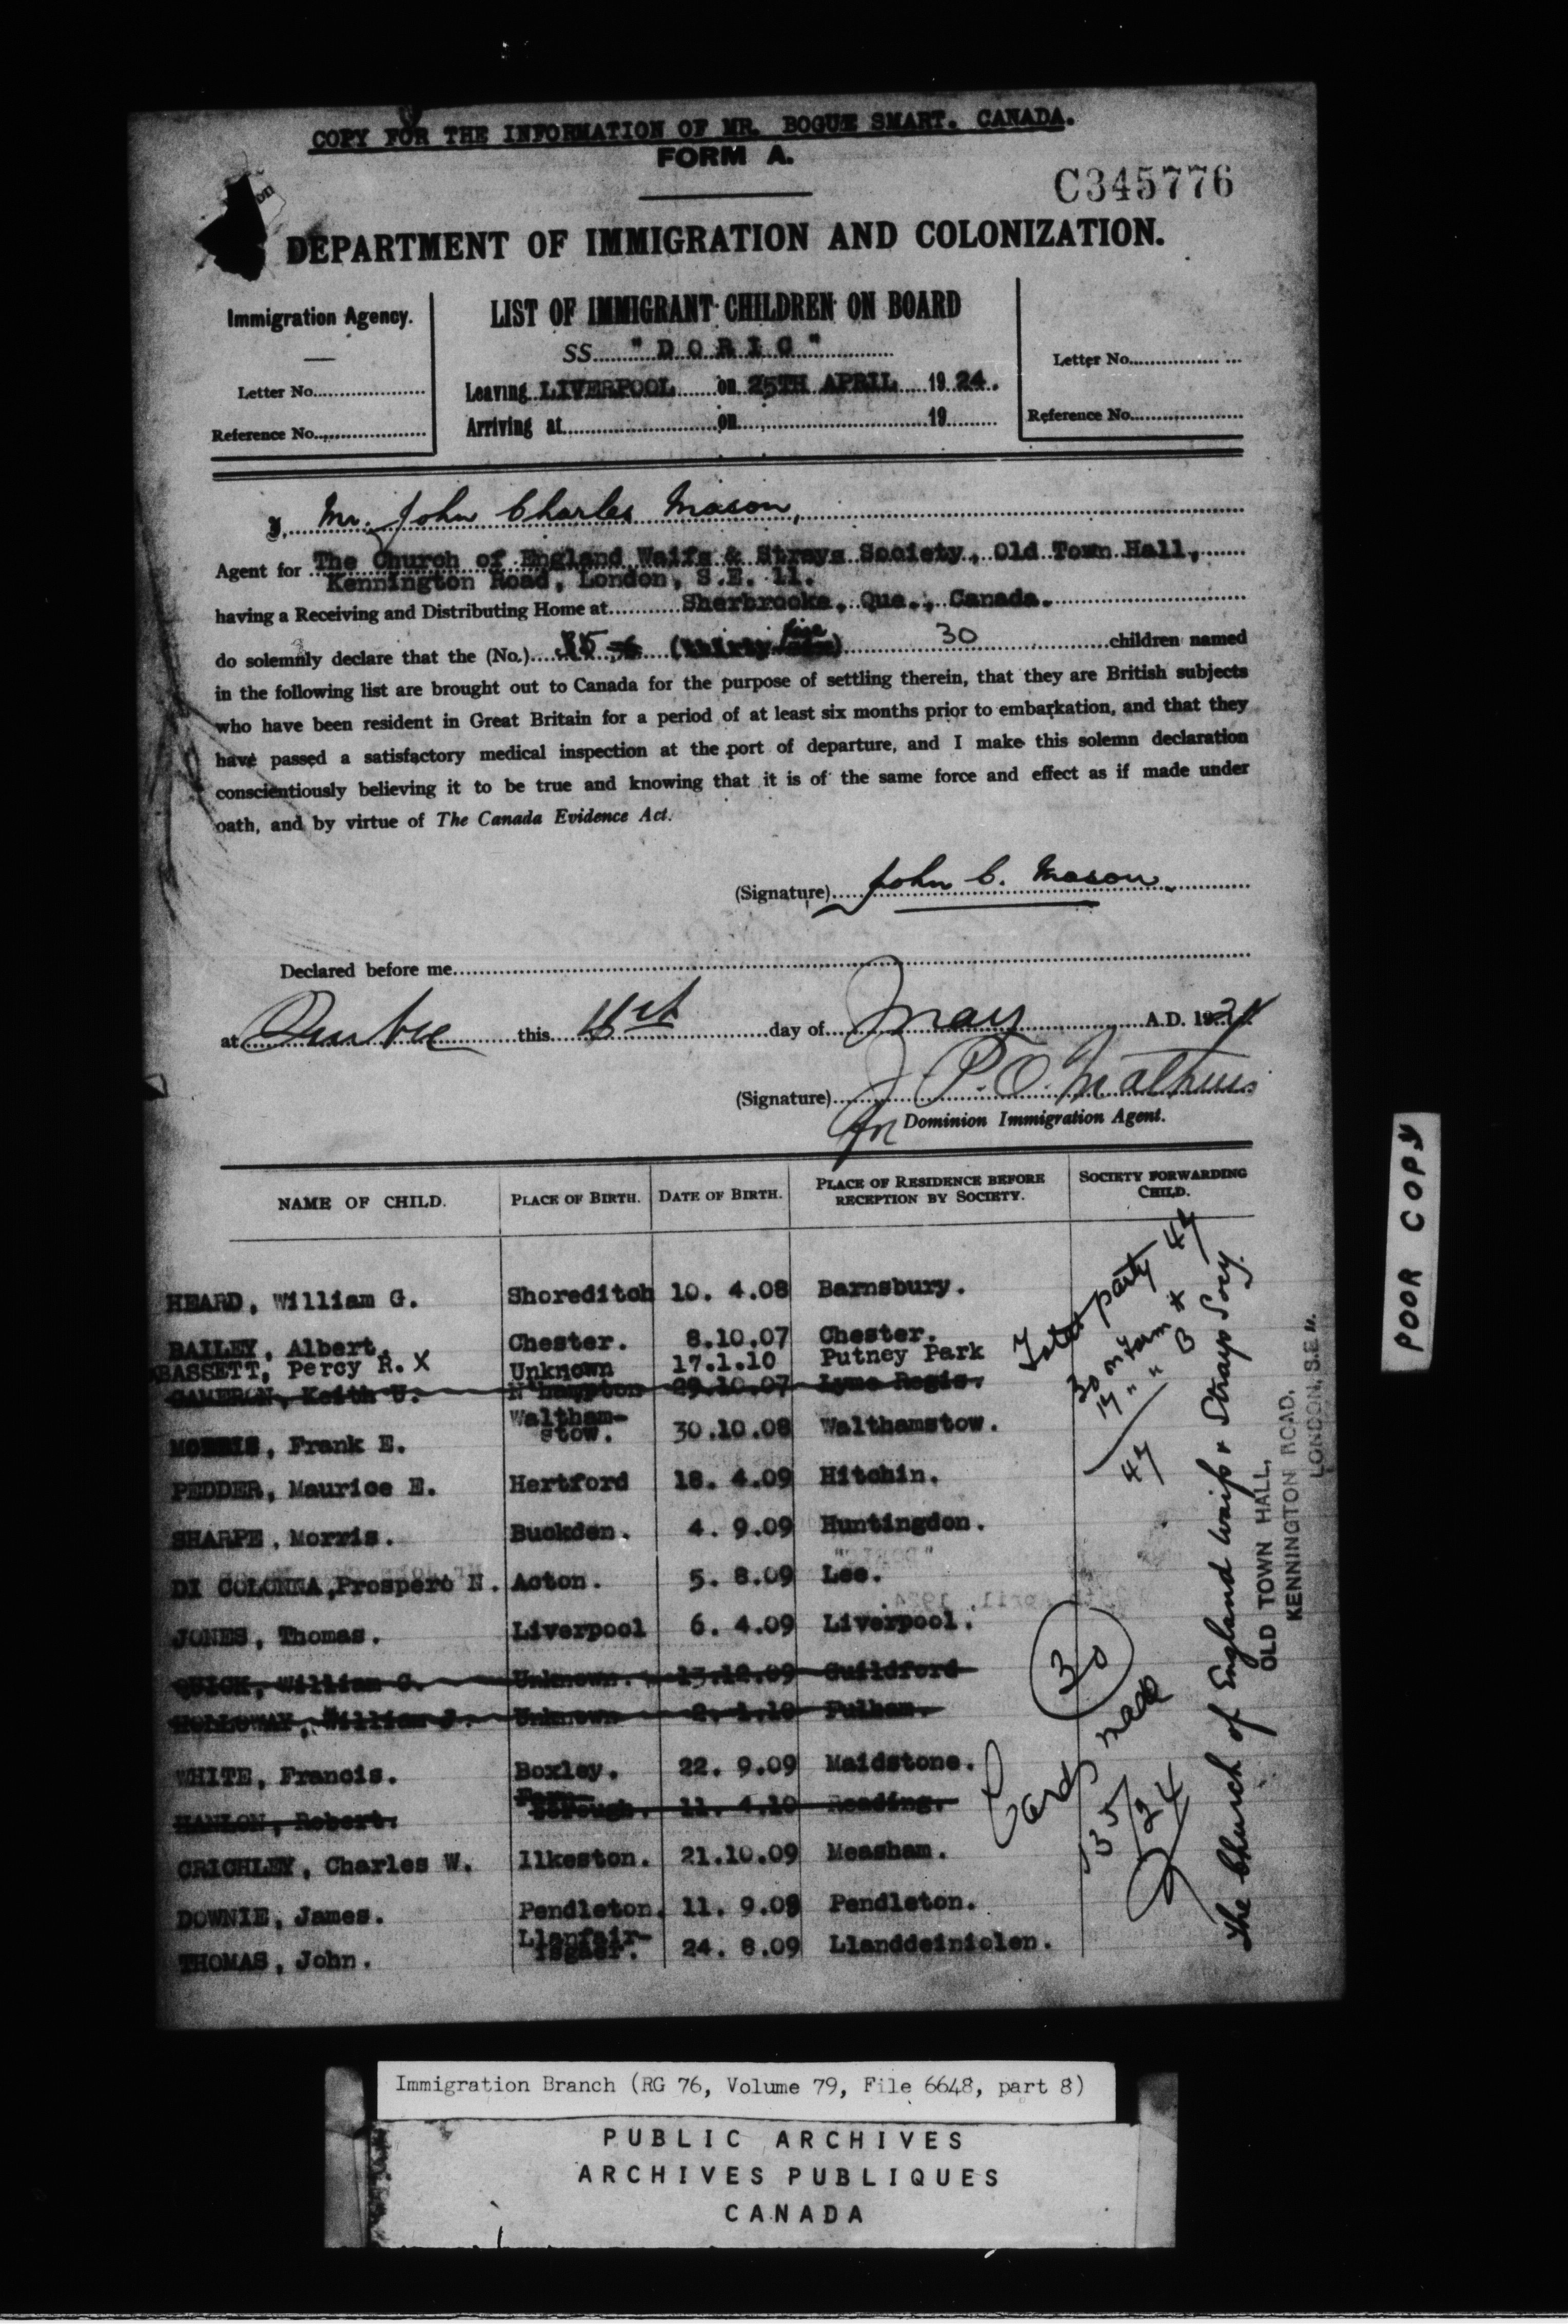 COPY FOR THE INFORMATION OF MR. BOGUE SMART. CANADA.
FORM A.
C345776
DEPARTMENT OF IMMIGRATION AND COLONIZATION.
Immigration Agency.
Letter No.
Reference No.
LIST OF IMMIGRANT CHILDREN ON BOARD
SS "DORIC"
Leaving LIVERPOOL on 25TH APRIL 1924.
Arriving at on 19
Letter No.
Reference No.
I, Mr. John Charles Mason,
Agent for The Church of England Waifs & Strays Society, Old Town Hall,
Kennington Road, London, S.E. 11.
having a Receiving and Distributing Home at Sherbrooke, Que., Canada.
do solemnly declare that the (No.) 35 (thirty five) 30 children named
in the following list are brought out to Canada for the purpose of settling therein, that they are British subjects
who have been resident in Great Britain for a period of at least six months prior to embarkation, and that they
have passed a satisfactory medical inspection at the port of departure, and I make this solemn declaration
conscientiously believing it to be true and knowing that it is of the same force and effect as if made under
oath, and by virtue of The Canada Evidence Act.
(Signature) John C. Mason
Declared before me
at Quebec this day of May A.D. 1924
(Signature) P. O. Mathews
for Dominion Immigration Agent.
NAME OF CHILD. PLACE OF BIRTH. DATE OF BIRTH. PLACE OF RESIDENCE BEFORE RECEPTION BY SOCIETY. SOCIETY FORWARDING CHILD.
HEARD, William G. Shoreditch 10. 4.08 Barnsbury.
BAILEY, Albert. Chester. 8.10.07 Chester.
BASSETT, Percy R. X Unknown 17.1.10 Putney Park
CAMERON, Keith U. N'hampton 29.10.07 Lyme Regis.
MORRIS, Frank E. Waltham-stow. 30.10.08 Walthamstow.
PEDDER, Maurice E. Hertford 18. 4.09 Hitchin.
SHARPE, Morris. Buckden. 4. 9.09 Huntingdon.
DI COLONNA, Prospero N. Acton. 5. 8.09 Lee.
JONES, Thomas. Liverpool 6. 4.09 Liverpool.
QUICK, William C. Unknown. 13.12.09 Guildford
HOLLOWAY, William J. Unknown 2. 1.10 Fulham.
WHITE, Francis. Boxley. 22. 9.09 Maidstone.
HANLON, Robert. Farn-borough. 11. 4.10 Reading.
CRICHLEY, Charles W. Ilkeston. 21.10.09 Measham.
DOWNIE, James. Pendleton. 11. 9.09 Pendleton.
THOMAS, John. Llanfair-isgaer. 24. 8.09 Llanddeiniolen.
Total party 47
30 on Form A
17 " " B
47
30
Cards made
13/5/24
The Church of England Waifs & Strays Socy.
OLD TOWN HALL,
KENNINGTON ROAD,
LONDON, S.E. 11.
POOR COPY
Immigration Branch (RG 76, Volume 79, File 6648, part 8)
PUBLIC ARCHIVES
ARCHIVES PUBLIQUES
CANADA